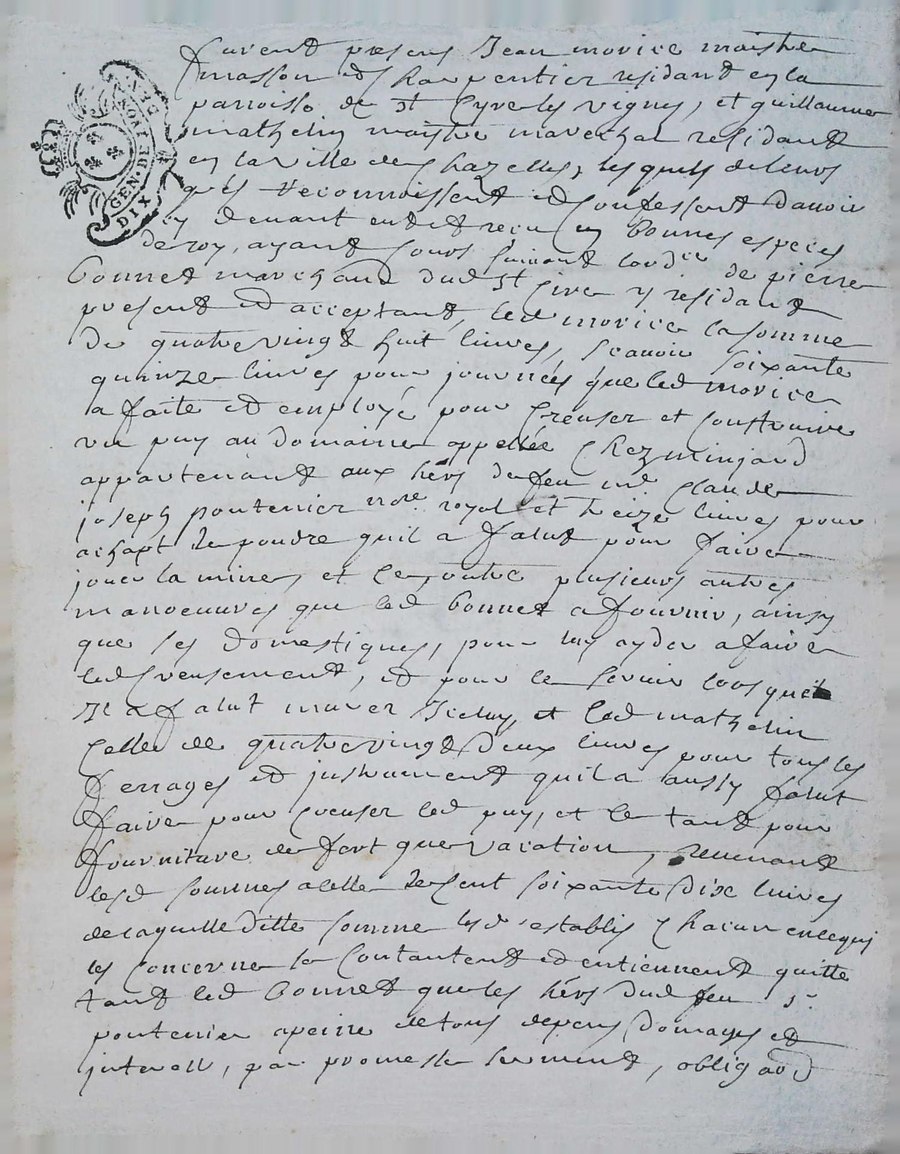 GEN. DE LYON
DIX DEN
furent presens Jean morice maistre
masson et charpentier residant en la
parroisse de st Cyre les vignes, et guillaume
mathelin maistre marechal residant
en la ville de Chazelles, lesquels de leurs
grés reconnoissent et Confessent d'avoir
cy devant eu et recu en bonnes especes
de roy, ayant Cours suivant lordce de pierre
bonnet marchand dud st Cire y residant
present et acceptant, led morice la somme
de quatre vingt huit livres, scavoir soixante
quinze livres pour journées que led morice
a faite et employé pour Creuser et Construire
un puy au domaine appellée Chez minjard
appartenant aux hers de feu me Claude
joseph pontenier nore royal et treize livres pour
achapt de poudre quil a falut pour faire
jouer la mine, et ce outre plusieurs autres
manoeuvres que led bonnet a fournir, ainsy
que ses domestiques, pour luy ayder a faire
led Creusement, et pour le servir lors quil
Il a falut murer Iceluy, et led mathelin
Celle de quatre vingt deux livres pour tous les
ferrages et justrument quil a aussy falut
faire pour Creuser led puy, et ce tant pour
fourniture de fert que vacation, revenant
lesd sommes a celle de Cent soixante dix livres
de laquelle ditte somme lesd establis Chacun en ce qui
les Concerne se Contantent et en tiennent quitte
tant led bonnet que les hers dud feu sr
pontenier a peine de tous depens domages et
interest, par promesse serment, obligaon